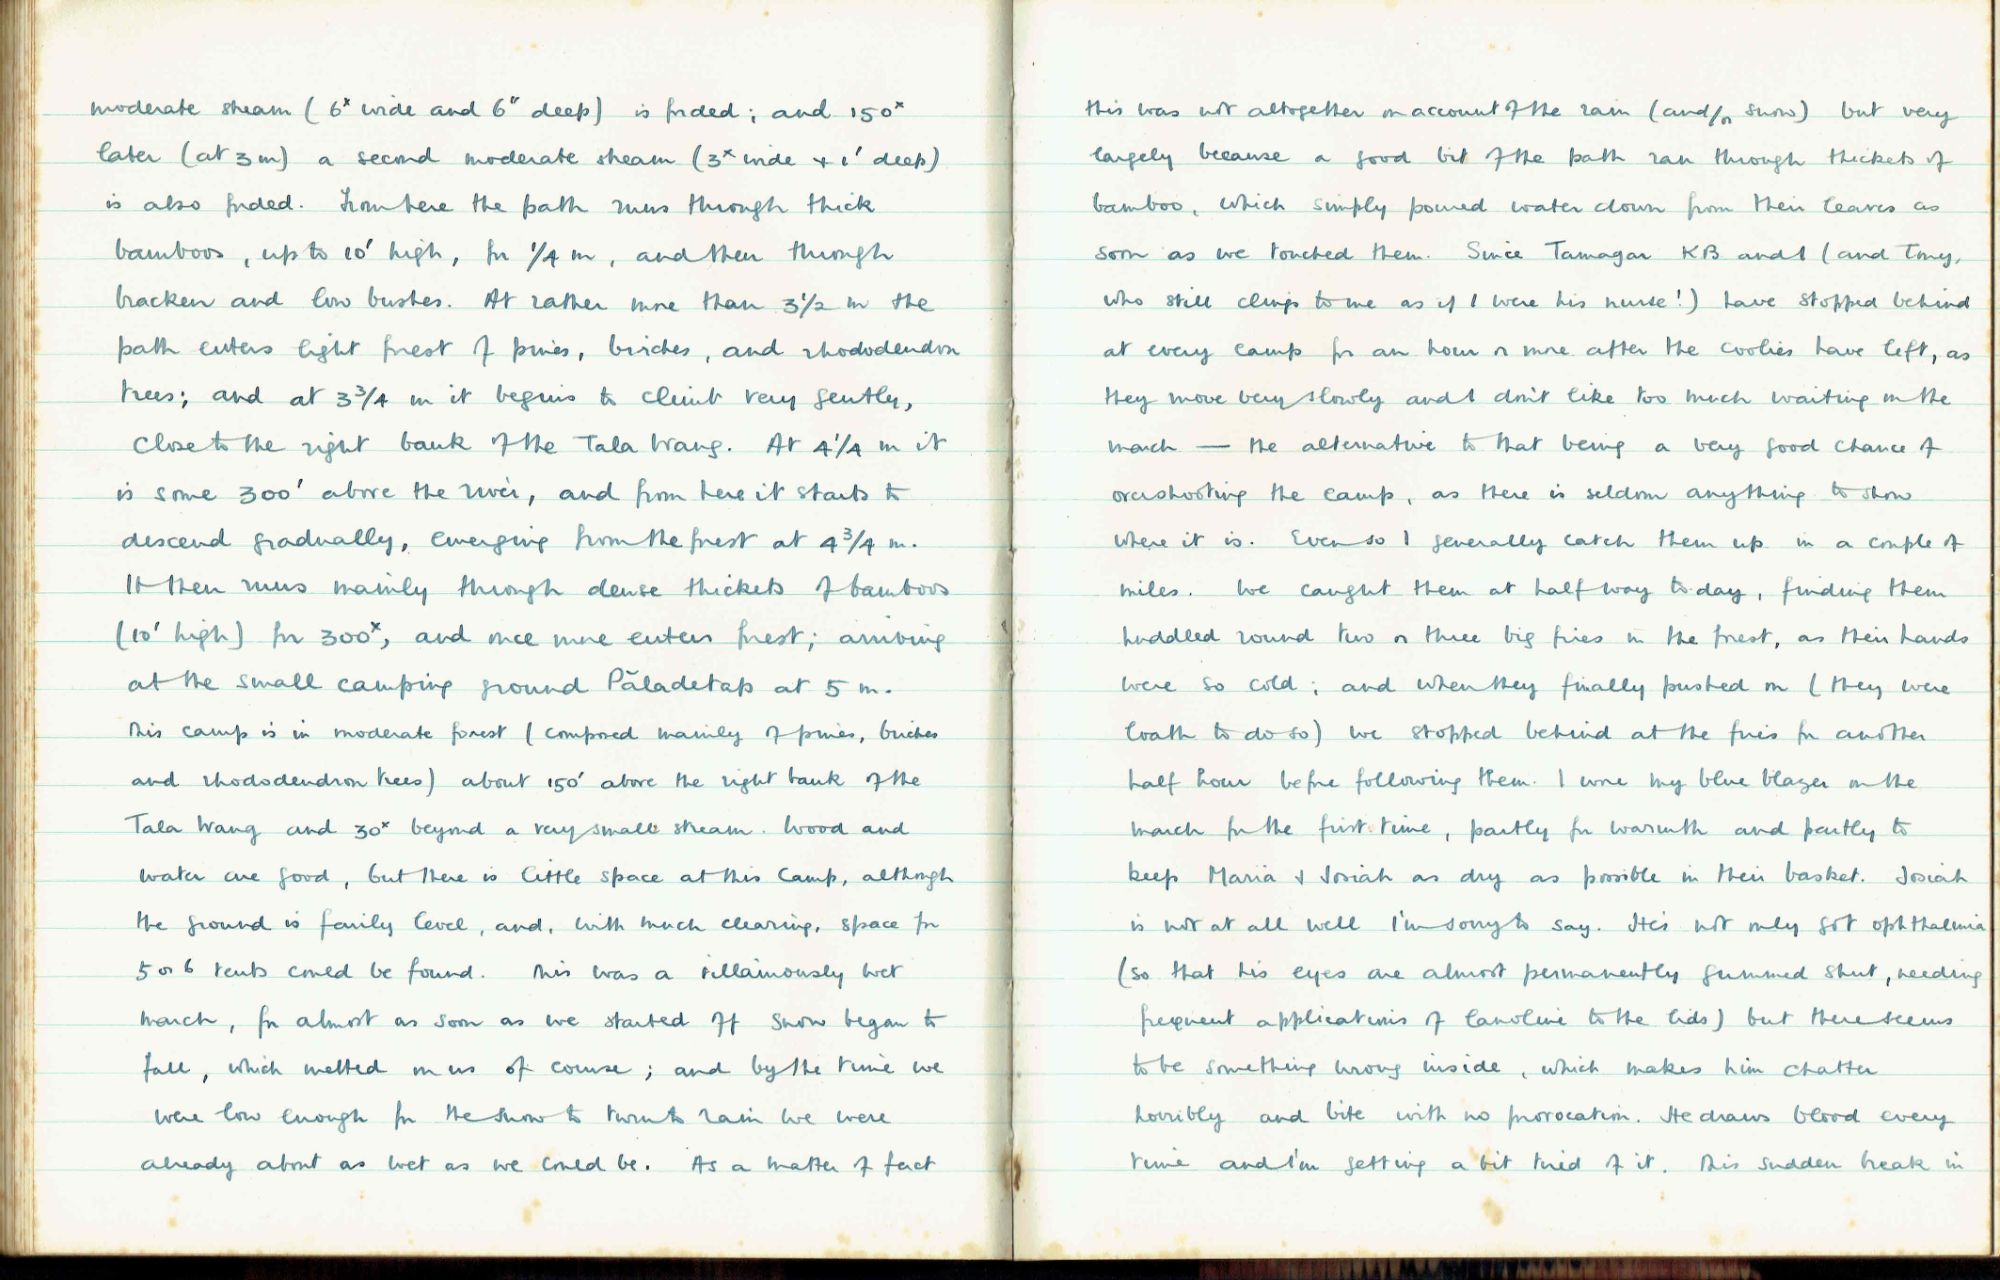 moderate stream (6ˣ wide and 6" deep) is forded; and 150ˣ
later (at 3 m) a second moderate stream (3ˣ wide + 1' deep)
is also forded. From here the path runs through thick
bamboos, up to 10' high, for 1/4 m, and then through
bracken and low bushes. At rather more than 3 1/2 m the
path enters light forest of pines, birches, and rhododendron
trees; and at 3 3/4 m it begins to climb very gently,
close to the right bank of the Tala Wang. At 4 1/4 m it
is some 300' above the river, and from here it starts to
descend gradually, emerging from the forest at 4 3/4 m.
It then runs mainly through dense thickets of bamboos
(10' high) for 300ˣ, and once more enters forest; arriving
at the small camping ground Păladetap at 5 m.
This camp is in moderate forest (composed mainly of pines, birches
and rhododendron trees) about 150' above the right bank of the
Tala Wang and 30ˣ beyond a very small stream. Wood and
water are good, but there is little space at this camp, although
the ground is fairly level, and, with much clearing, space for
5 or 6 tents could be found. This was a villainously wet
march, for almost as soon as we started off snow began to
fall, which melted on us of course; and by the time we
were low enough for the snow to turn to rain we were
already about as wet as we could be. As a matter of fact
this was not altogether on account of the rain (and/or snow) but very
largely because a good bit of the path ran through thickets of
bamboo, which simply poured water down from their leaves as
soon as we touched them. Since Tamagar KB and I (and Tony,
who still clings to me as if I were his nurse!) have stopped behind
at every camp for an hour or more after the coolies have left, as
they move very slowly and I don't like too much waiting on the
march — the alternative to that being a very good chance of
overshooting the camp, as there is seldom anything to show
where it is. Even so I generally catch them up in a couple of
miles. We caught them at half way to-day, finding them
huddled round two or three big fires in the forest, as their hands
were so cold; and when they finally pushed on (they were
loath to do so) we stopped behind at the fires for another
half hour before following them. I wore my blue blazer on the
march for the first time, partly for warmth and partly to
keep Maria + Josiah as dry as possible in their basket. Josiah
is not at all well I'm sorry to say. He's not only got ophthalmia
(so that his eyes are almost permanently gummed shut, needing
frequent applications of lanoline to the lids) but there seems
to be something wrong inside, which makes him chatter
horribly and bite with no provocation. He draws blood every
time and I'm getting a bit tired of it. This sudden break in